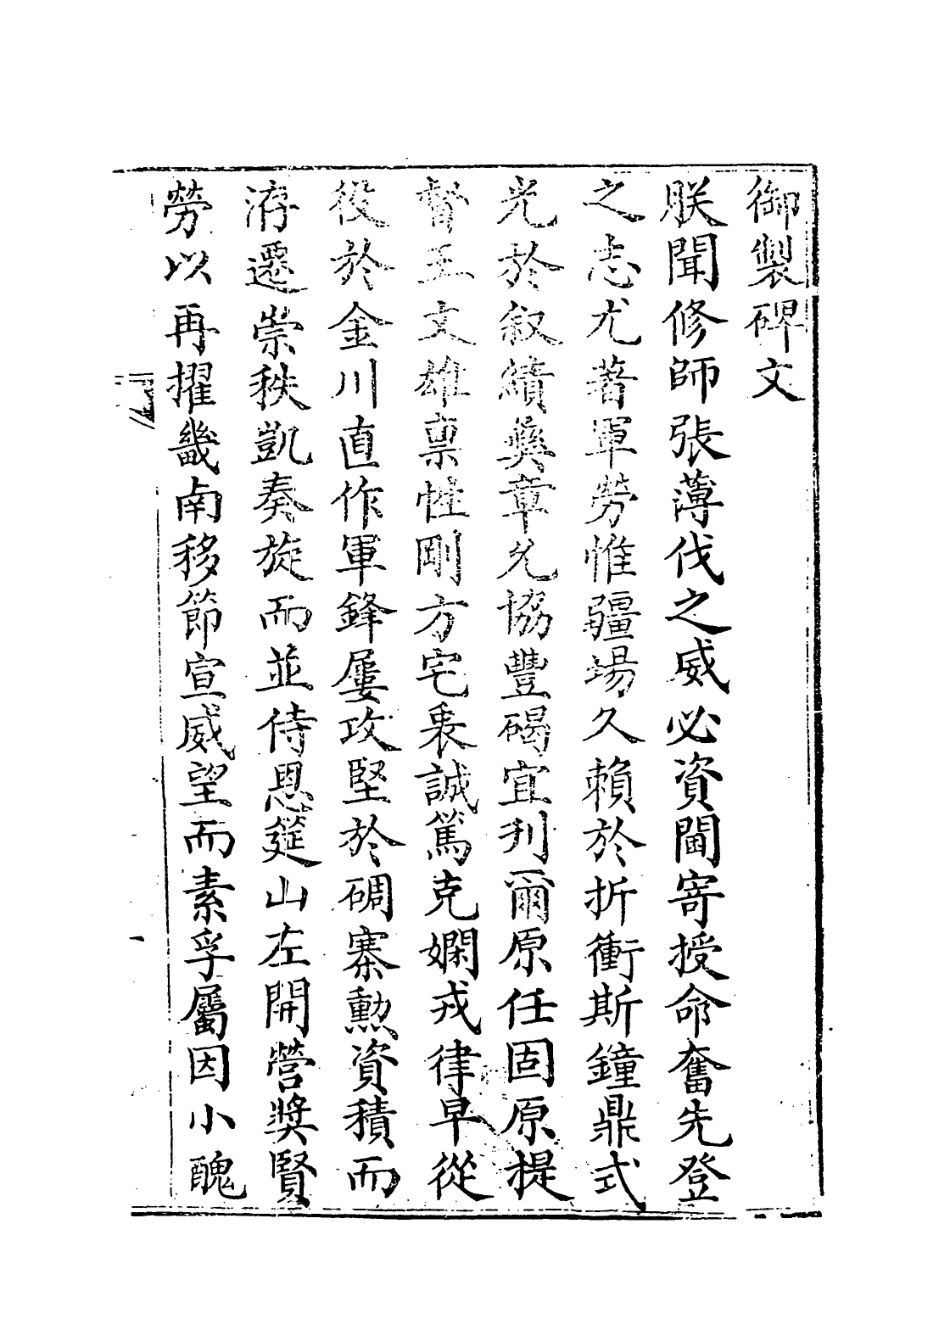 御製碑文
朕聞修師張薄伐之威必資閫寄授命奮先登
之志尤著軍勞惟疆場久賴於折衝斯鐘鼎式
光於叙績彝章允協豐碣宜刋爾原任固原提
督王文雄禀性剛方宅衷誠篤克嫻戎律早從
役於金川直作軍鋒屢攻堅於碉寨勲資積而
洊遷崇秩凱奏旋而並侍恩筵山左開營奬賢
勞以再擢畿南移節宣威望而素孚屬因小醜